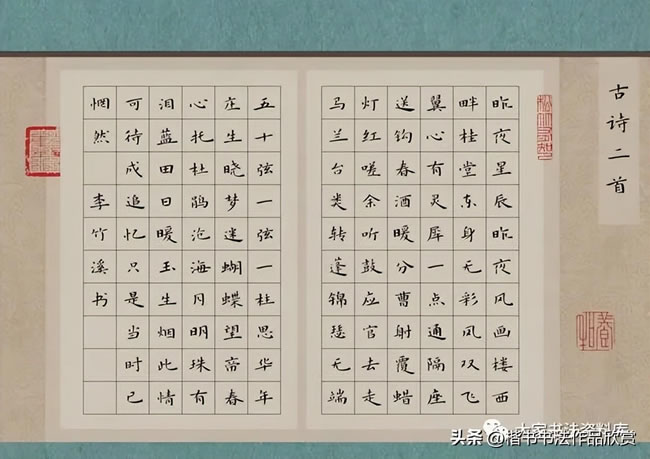 古诗二首
昨夜星辰昨夜风画楼西
畔桂堂东身无彩凤双飞
翼心有灵犀一点通隔座
送钩春酒暖分曹射覆蜡
灯红嗟余听鼓应官去走
马兰台类转蓬锦瑟无端
五十弦一弦一柱思华年
庄生晓梦迷蝴蝶望帝春
心托杜鹃沧海月明珠有
泪蓝田日暖玉生烟此情
可待成追忆只是当时已
惘然 李竹溪书
大家书法资料库
头条 @楷书书法作品欣赏